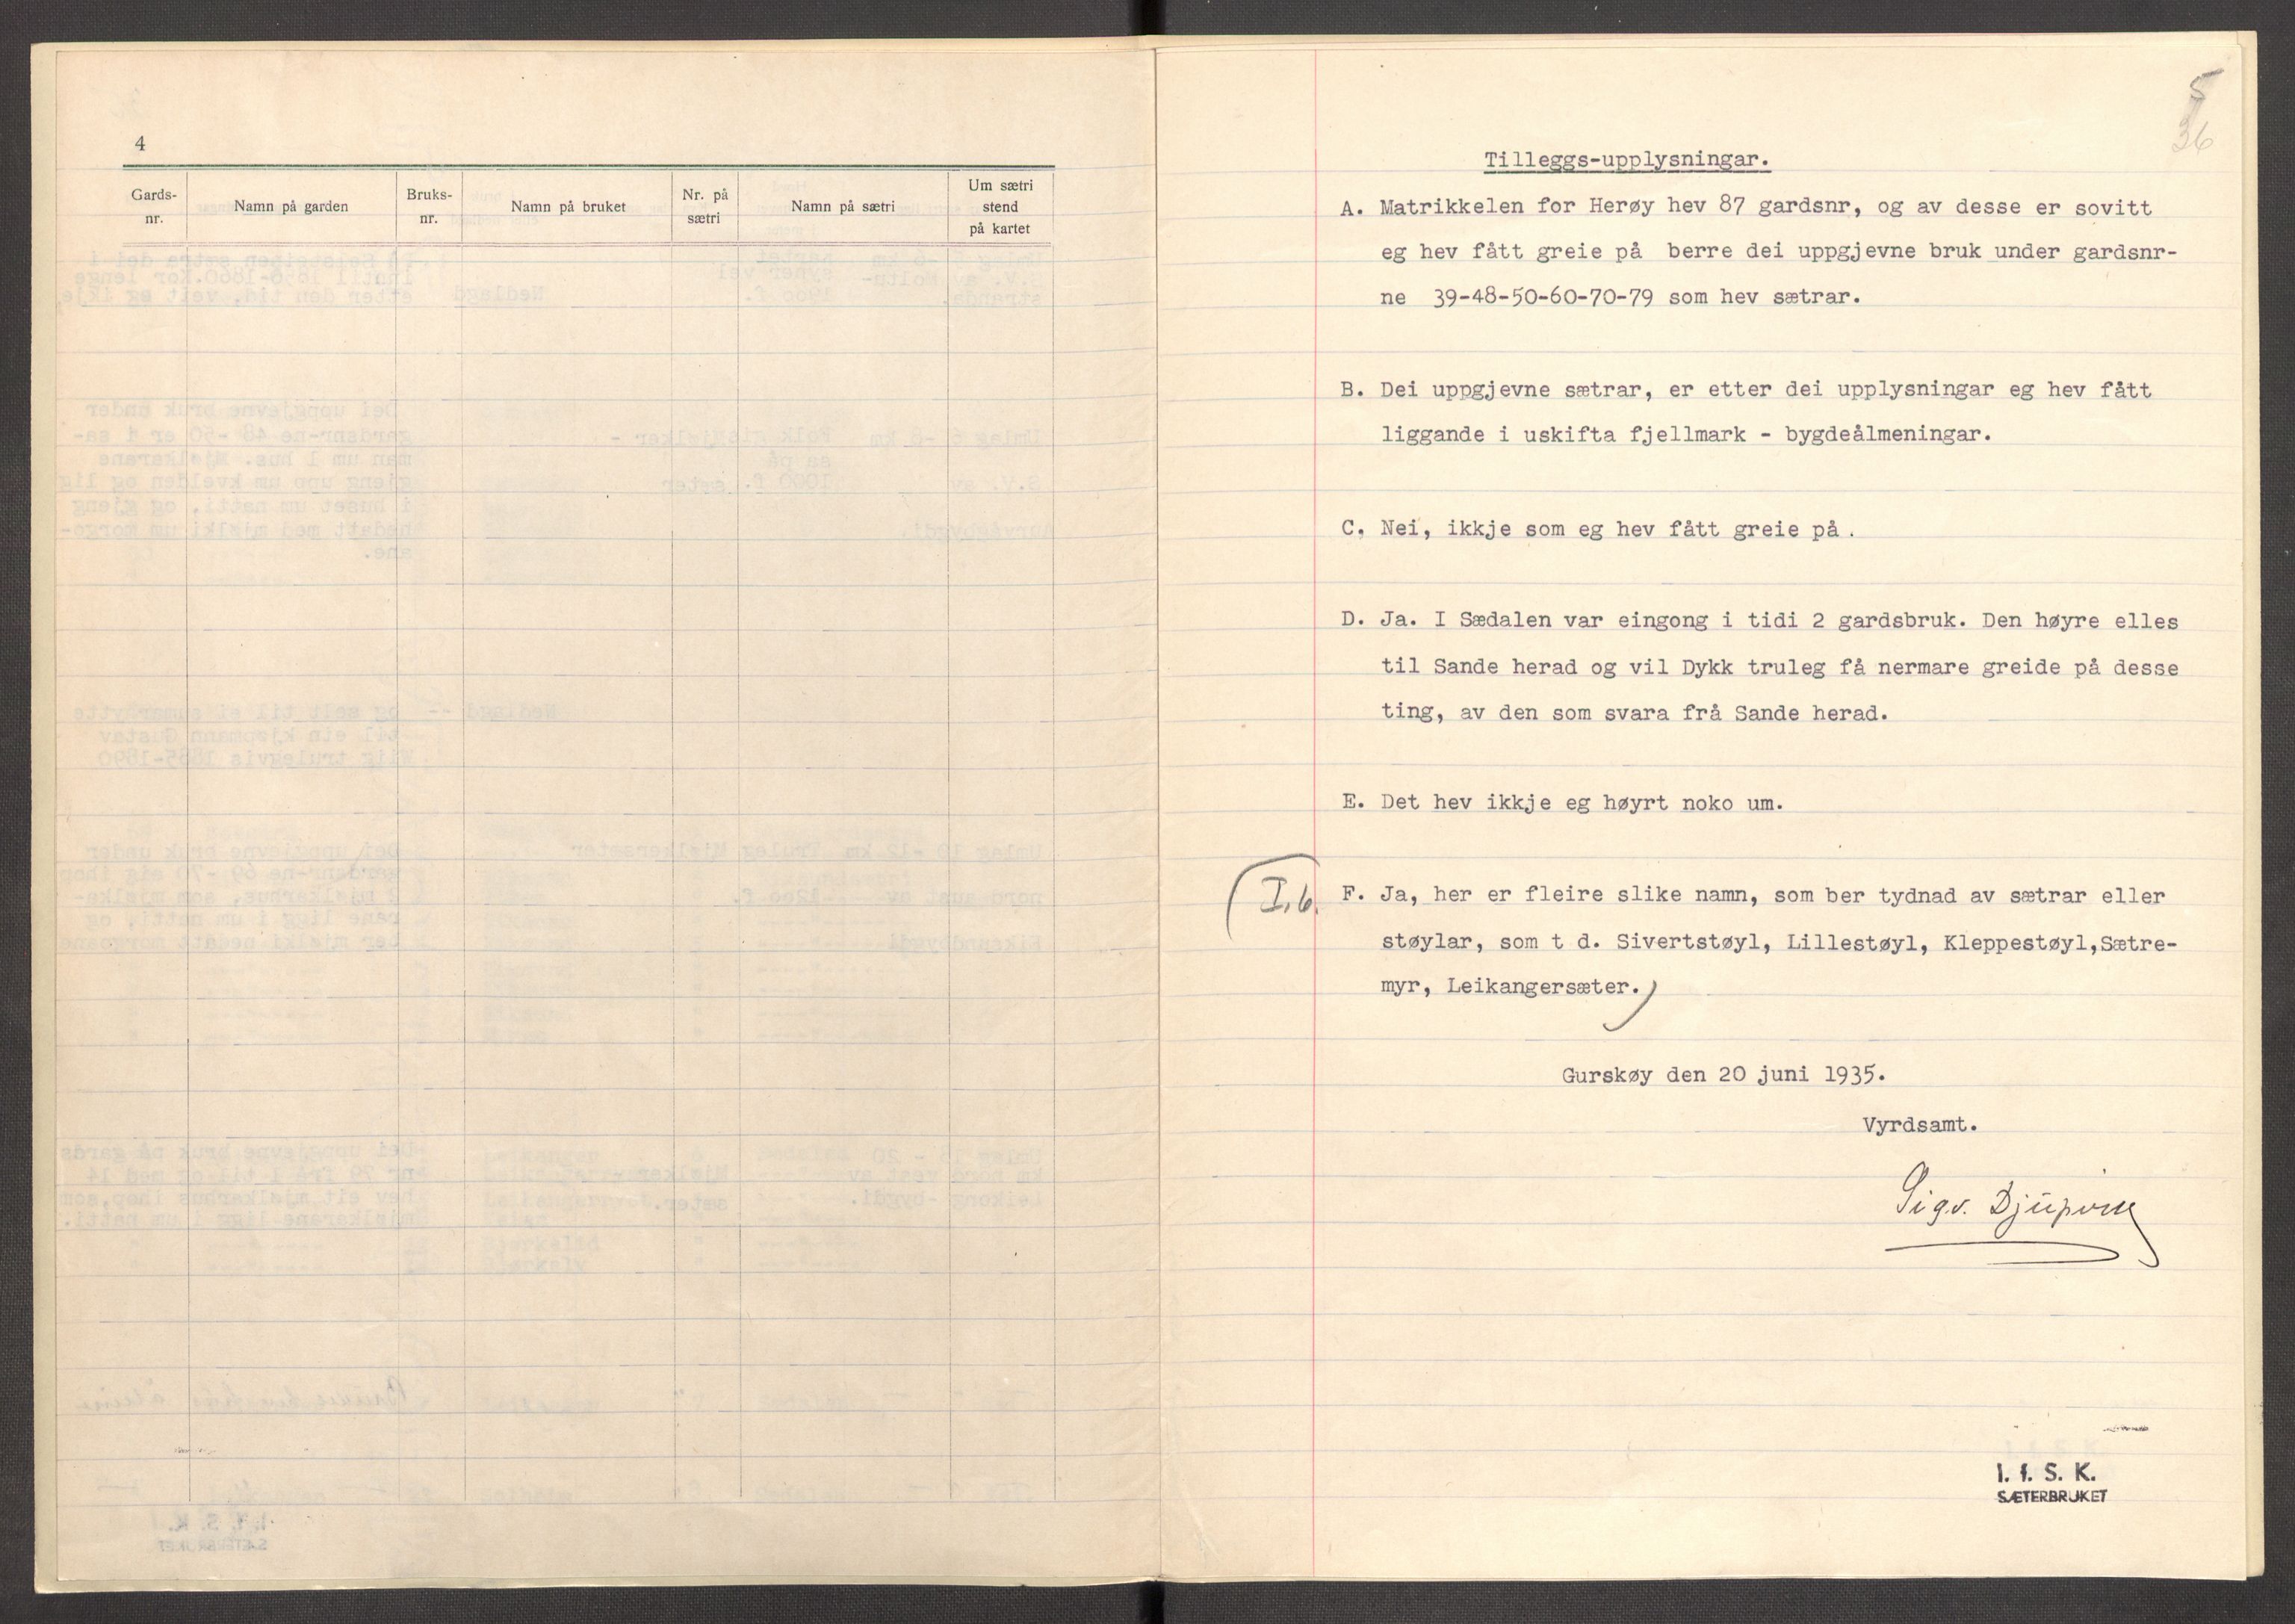 4
Gards-
nr.
Namn på garden
Bruks-
nr.
Namn på bruket
Nr. på
sætri
Namn på sætri
Um sætri
stend
på kartet
5
36
Tilleggs-upplysningar.
A. Matrikkelen for Herøy hev 87 gardsnr, og av desse er sovitt
eg hev fått greie på berre dei uppgjevne bruk under gardsnr-
ne 39-48-50-60-70-79 som hev sætrar.
B. Dei uppgjevne sætrar, er etter dei upplysningar eg hev fått
liggande i uskifta fjellmark - bygdeålmeningar.
C. Nei, ikkje som eg hev fått greie på.
D. Ja. I Sædalen var eingong i tidi 2 gardsbruk. Den høyre elles
til Sande herad og vil Dykk truleg få nermare greide på desse
ting, av den som svara frå Sande herad.
E. Det hev ikkje eg høyrt noko um.
(I,6. F. Ja, her er fleire slike namn, som ber tydnad av sætrar eller
støylar, som t d. Sivertstøyl, Lillestøyl, Kleppestøyl,Sætre-
myr, Leikangersæter.)
Gurskøy den 20 juni 1935.
Vyrdsamt.
Sigv. Djupvik
I. f. S. K.
SÆTERBRUKET